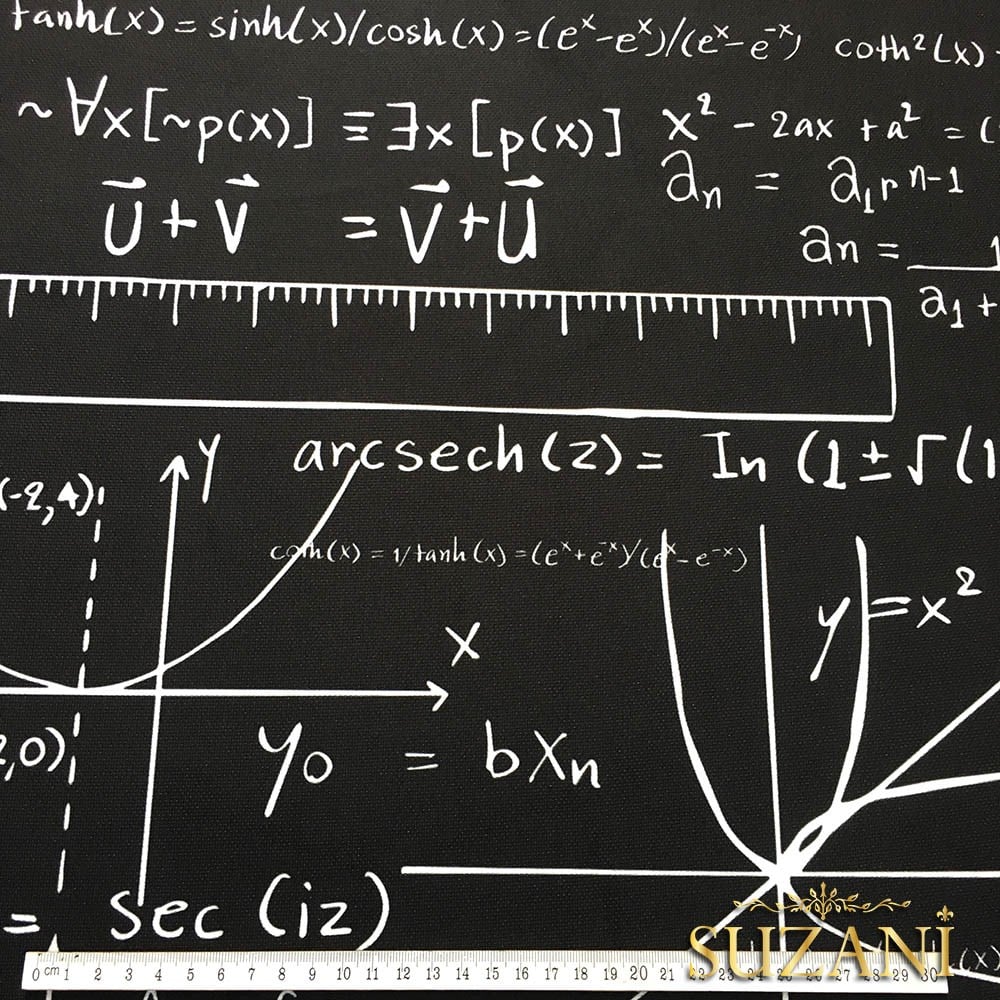 tanh(x) = sinh(x)/cosh(x) = (eˣ-eˣ)/(eˣ-e⁻ˣ) coth²(x) -
~∀x[~p(x)] ≡ ∃x [p(x)] x² - 2ax + a² = (
aₙ = a₁rⁿ⁻¹
u⃗ + v⃗ = v⃗ + u⃗
an = 1
a₁ +
y arcsech(z) = In (1 ± √(1
(-2,4)
coth(x) = 1/tanh(x) = (eˣ+e⁻ˣ)/(eˣ-e⁻ˣ)
y = x²
x
,0)
y₀ = bxₙ
= sec (iz)
SUZANİ
(x)
0 cm 1 2 3 4 5 6 7 8 9 10 11 12 13 14 15 16 17 18 19 20 21 22 23 24 25 26 27 28 29 30